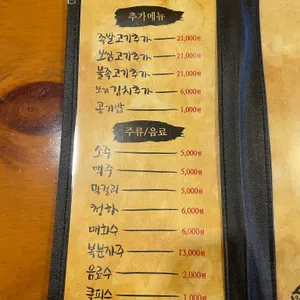 추가메뉴
족발고기추가 21,000원
보쌈고기추가 21,000원
불족고기추가 21,000원
보쌈김치추가 6,000원
공기밥 1,000원
주류/음료
소주 5,000원
맥주 5,000원
막걸리 5,000원
청하 6,000원
매화수 6,000원
복분자주 13,000원
음료수 2,000원
쿨피스 1,000원